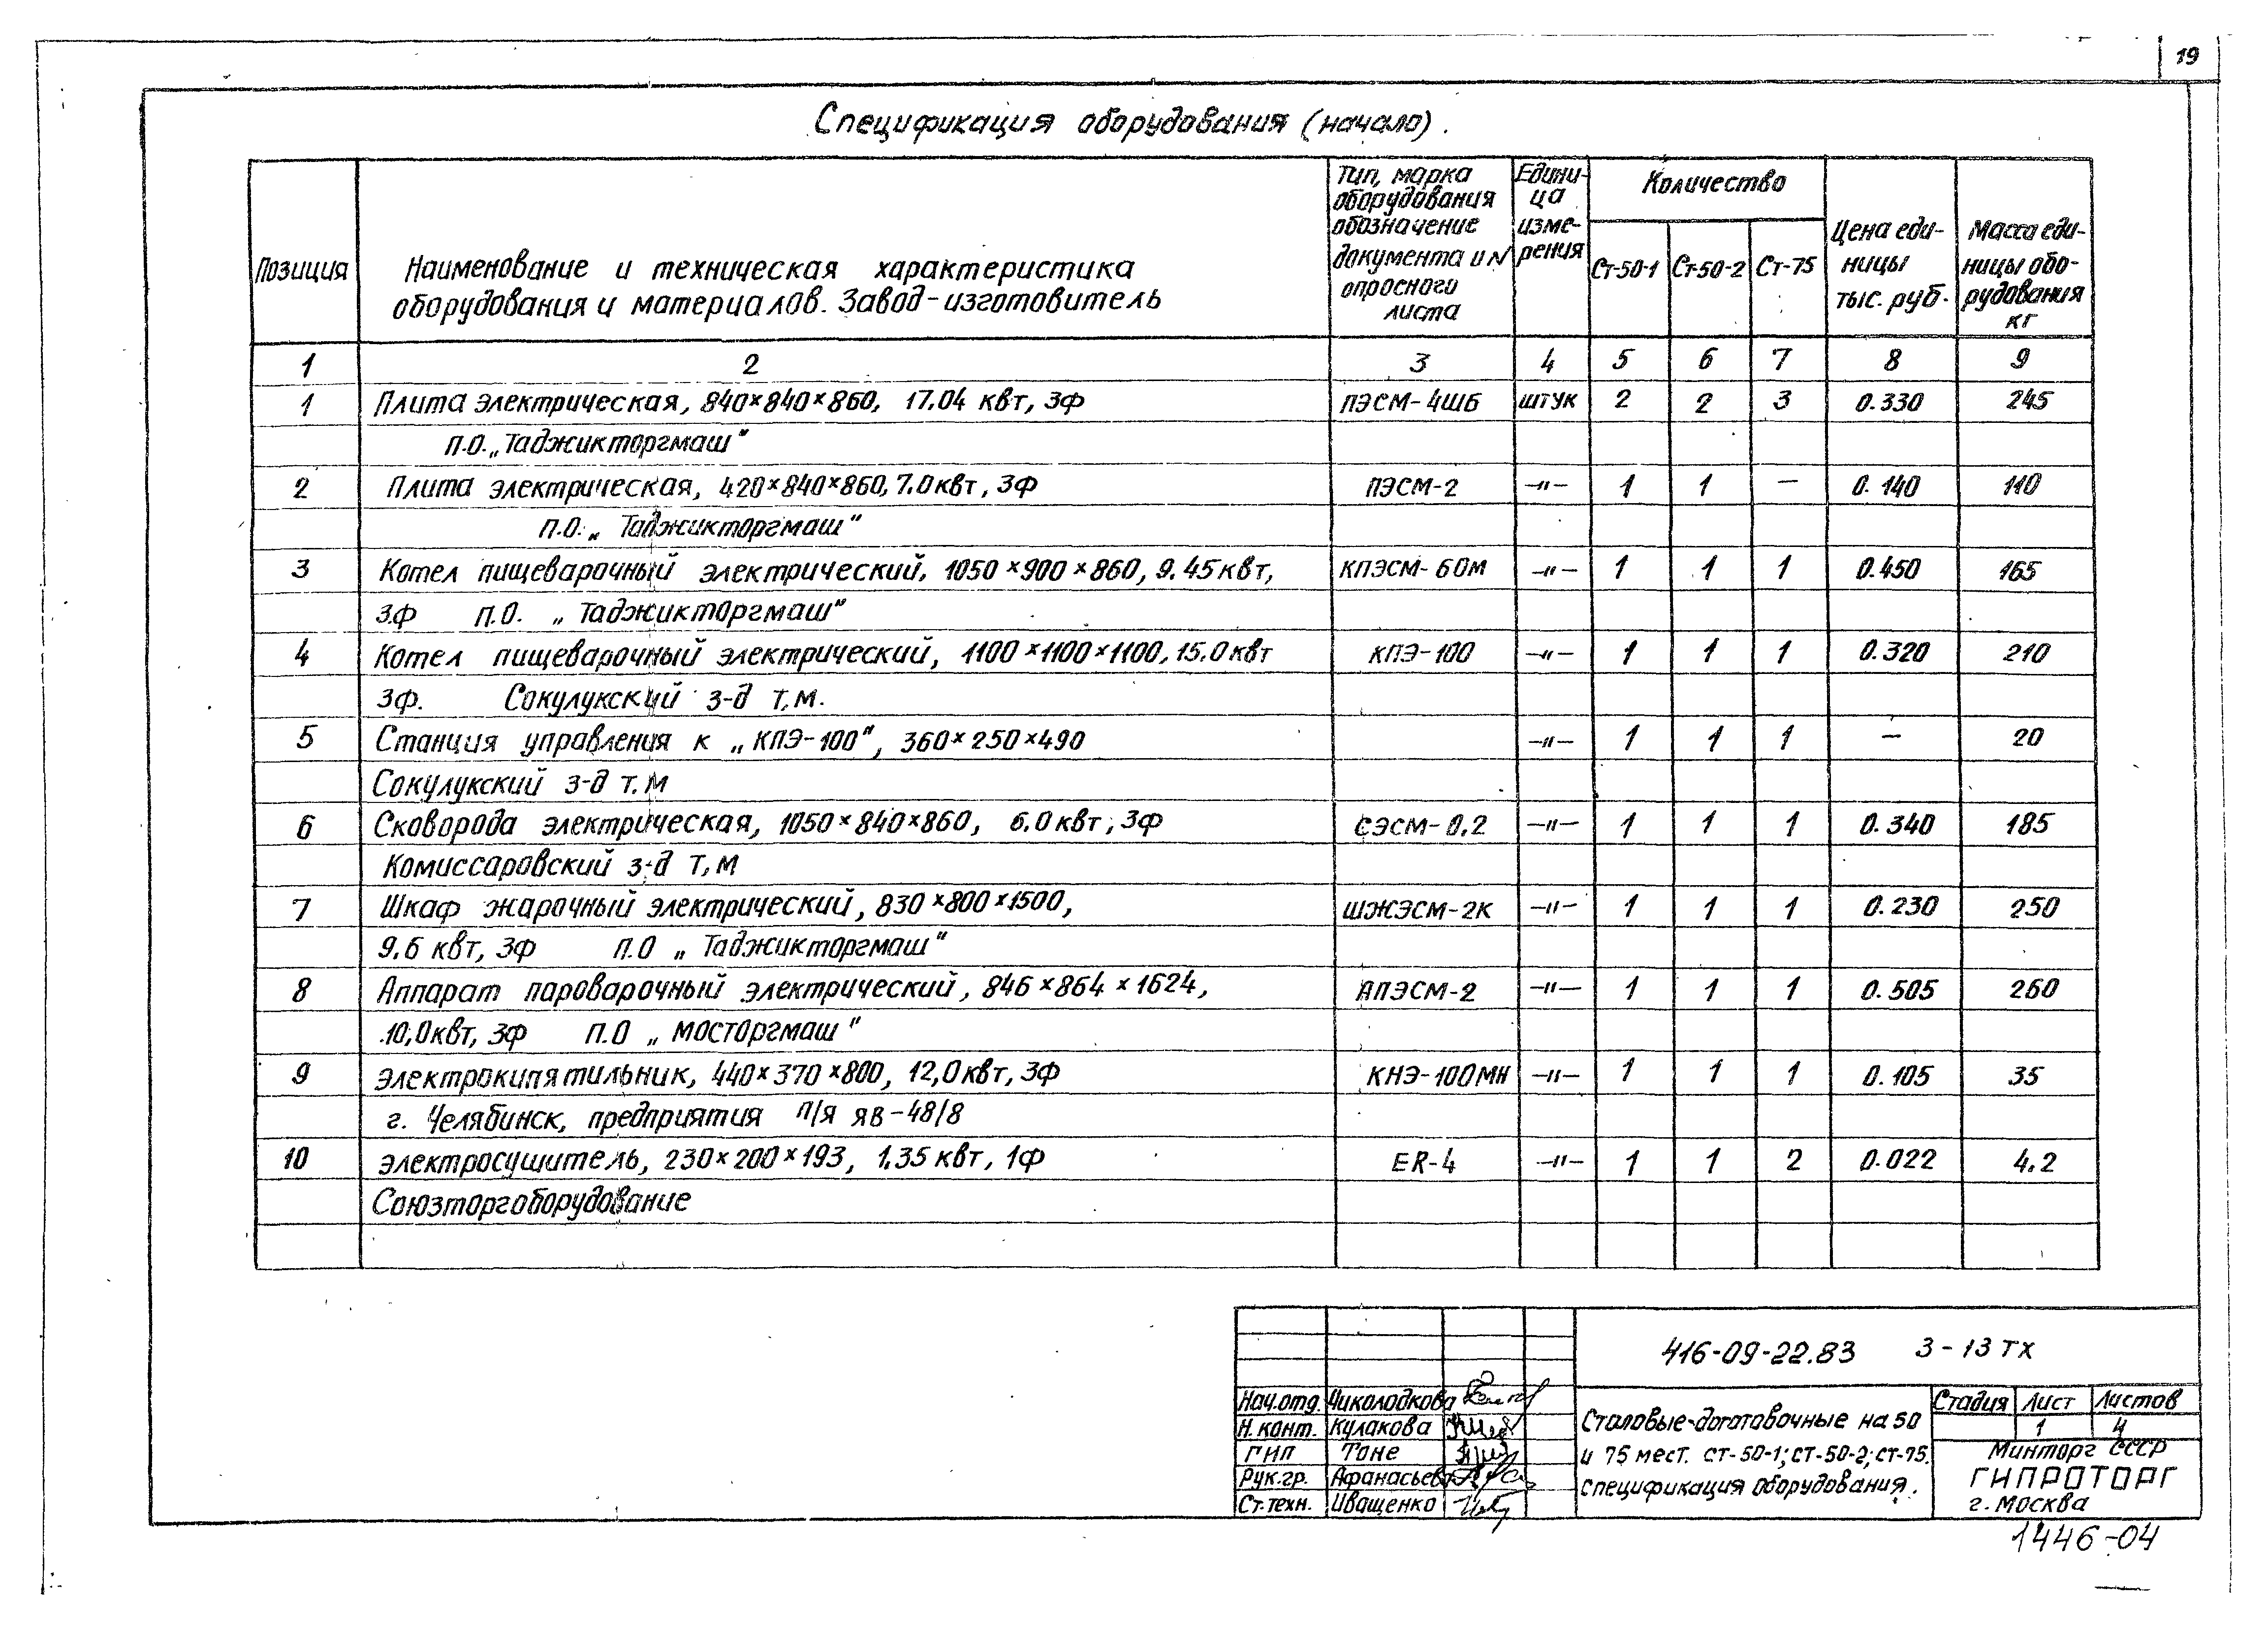 19
Спецификация оборудования (начало).
Позиция
Наименование и техническая характеристика
оборудования и материалов. Завод-изготовитель
Тип, марка
оборудования
обозначение
документа и N
опросного
листа
Едини-
ца
изме-
рения
Количество
Ст-50-1 Ст-50-2 Ст-75
Цена еди-
ницы
тыс. руб.
Масса еди-
ницы обо-
рудования
кг
1 2 3 4 5 6 7 8 9
1 Плита электрическая, 840×840×860, 17.04 квт, 3ф ПЭСМ-4ШБ штук 2 2 3 0.330 245
п.о. „Таджикторгмаш"
2 Плита электрическая, 420×840×860, 7.0 квт, 3ф ПЭСМ-2 -"- 1 1 - 0.140 110
п.о. „Таджикторгмаш"
3 Котел пищеварочный электрический, 1050×900×860, 9.45 квт, КПЭСМ-60м -"- 1 1 1 0.450 165
3ф п.о. „Таджикторгмаш"
4 Котел пищеварочный электрический, 1100×1100×1100, 15.0 квт КПЭ-100 -"- 1 1 1 0.320 210
3ф. Сокулукский з-д т.м.
5 Станция управления к „КПЭ-100", 360×250×490 -"- 1 1 1 - 20
Сокулукский з-д т.м
6 Сковорода электрическая, 1050×840×860, 6.0 квт, 3ф СЭСМ-0,2 -"- 1 1 1 0.340 185
Комиссаровский з-д т,м
7 Шкаф жарочный электрический, 830×800×1500, ШЖЭСМ-2К -"- 1 1 1 0.230 250
9.6 квт, 3ф п.о „Таджикторгмаш"
8 Аппарат пароварочный электрический, 846×864×1624, АПЭСМ-2 -"- 1 1 1 0.505 260
10,0 квт, 3ф п.о „Мосторгмаш"
9 Электрокипятильник, 440×370×800, 12,0 квт, 3ф КНЭ-100МН -"- 1 1 1 0.105 35
г. Челябинск, предприятия п/я ЯВ-48/8
10 Электросушитель, 230×200×193, 1.35 квт, 1ф ER-4 -"- 1 1 2 0.022 4.2
Союзторгоборудование
416-09-22.83 3-13 ТХ
Нач.отд. Чиколодкова
Н.конт. Кулакова
ГИП Тоне
Рук.гр. Афанасьева
Ст.техн. Иващенко
Столовые-доготовочные на 50
и 75 мест. СТ-50-1; СТ-50-2; СТ-75.
Спецификация оборудования.
Стадия Лист Листов
1 4
Минторг СССР
ГИПРОТОРГ
г. Москва
1446-04